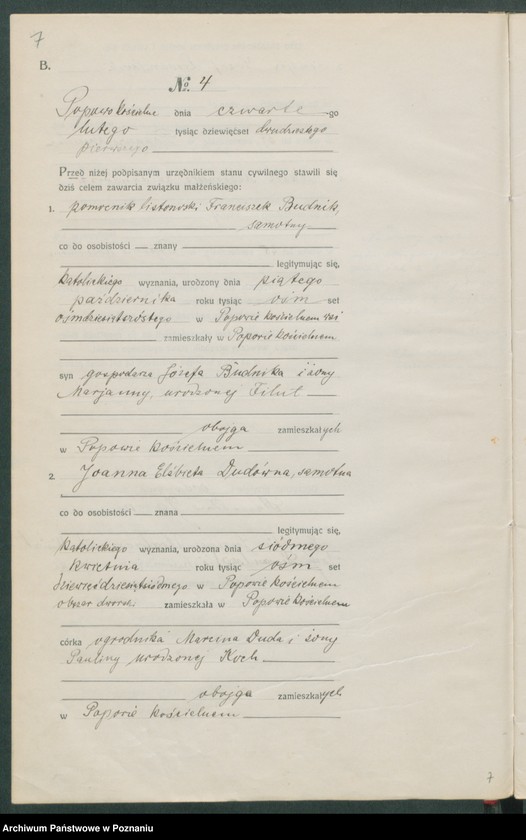 7
B.
№ 4
Popowo kościelne dnia czwarte -go
lutego tysiąc dziewięćset dwudziestego
pierwszego
Przed niżej podpisanym urzędnikiem stanu cywilnego stawili się
dziś celem zawarcia związku małżeńskiego:
1. pomocnik listonoski Franciszek Budnik,
samotny
co do osobistości znany
legitymując się,
katolickiego wyznania, urodzony dnia piątego
października roku tysiąc ośm set
w Popowie kościelnem wsi
zamieszkały w Popowie kościelnem
syn gospodarza Józefa Budnika i żony
Marjanny, urodzonej Filut
obojga zamieszkałych
w Popowie kościelnem
2. Joanna Elżbieta Dudówna, samotna
co do osobistości znana
legitymując się,
katolickiego wyznania, urodzona dnia siódmego
kwietnia roku tysiąc ośm set
dziewięćdziesiątsiódmego w Popowie kościelnem
obszar dworsk. zamieszkała w Popowie kościelnem
córka ogrodnika Marcina Duda i żony
Pauliny urodzonej Koch
obojga zamieszkałych
w Popowie kościelnem
7
Archiwum Państwowe w Poznaniu